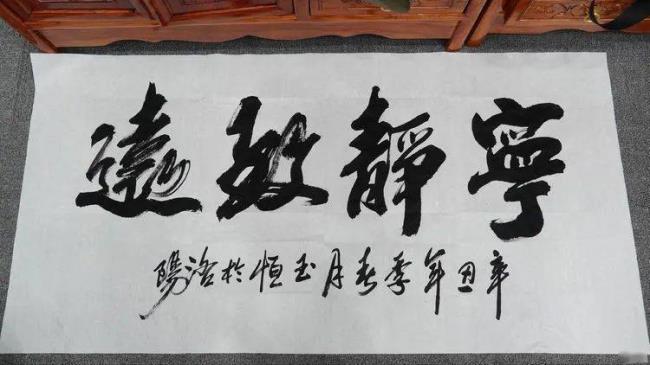 寧靜致遠
辛丑年季春月玉恒於洛陽